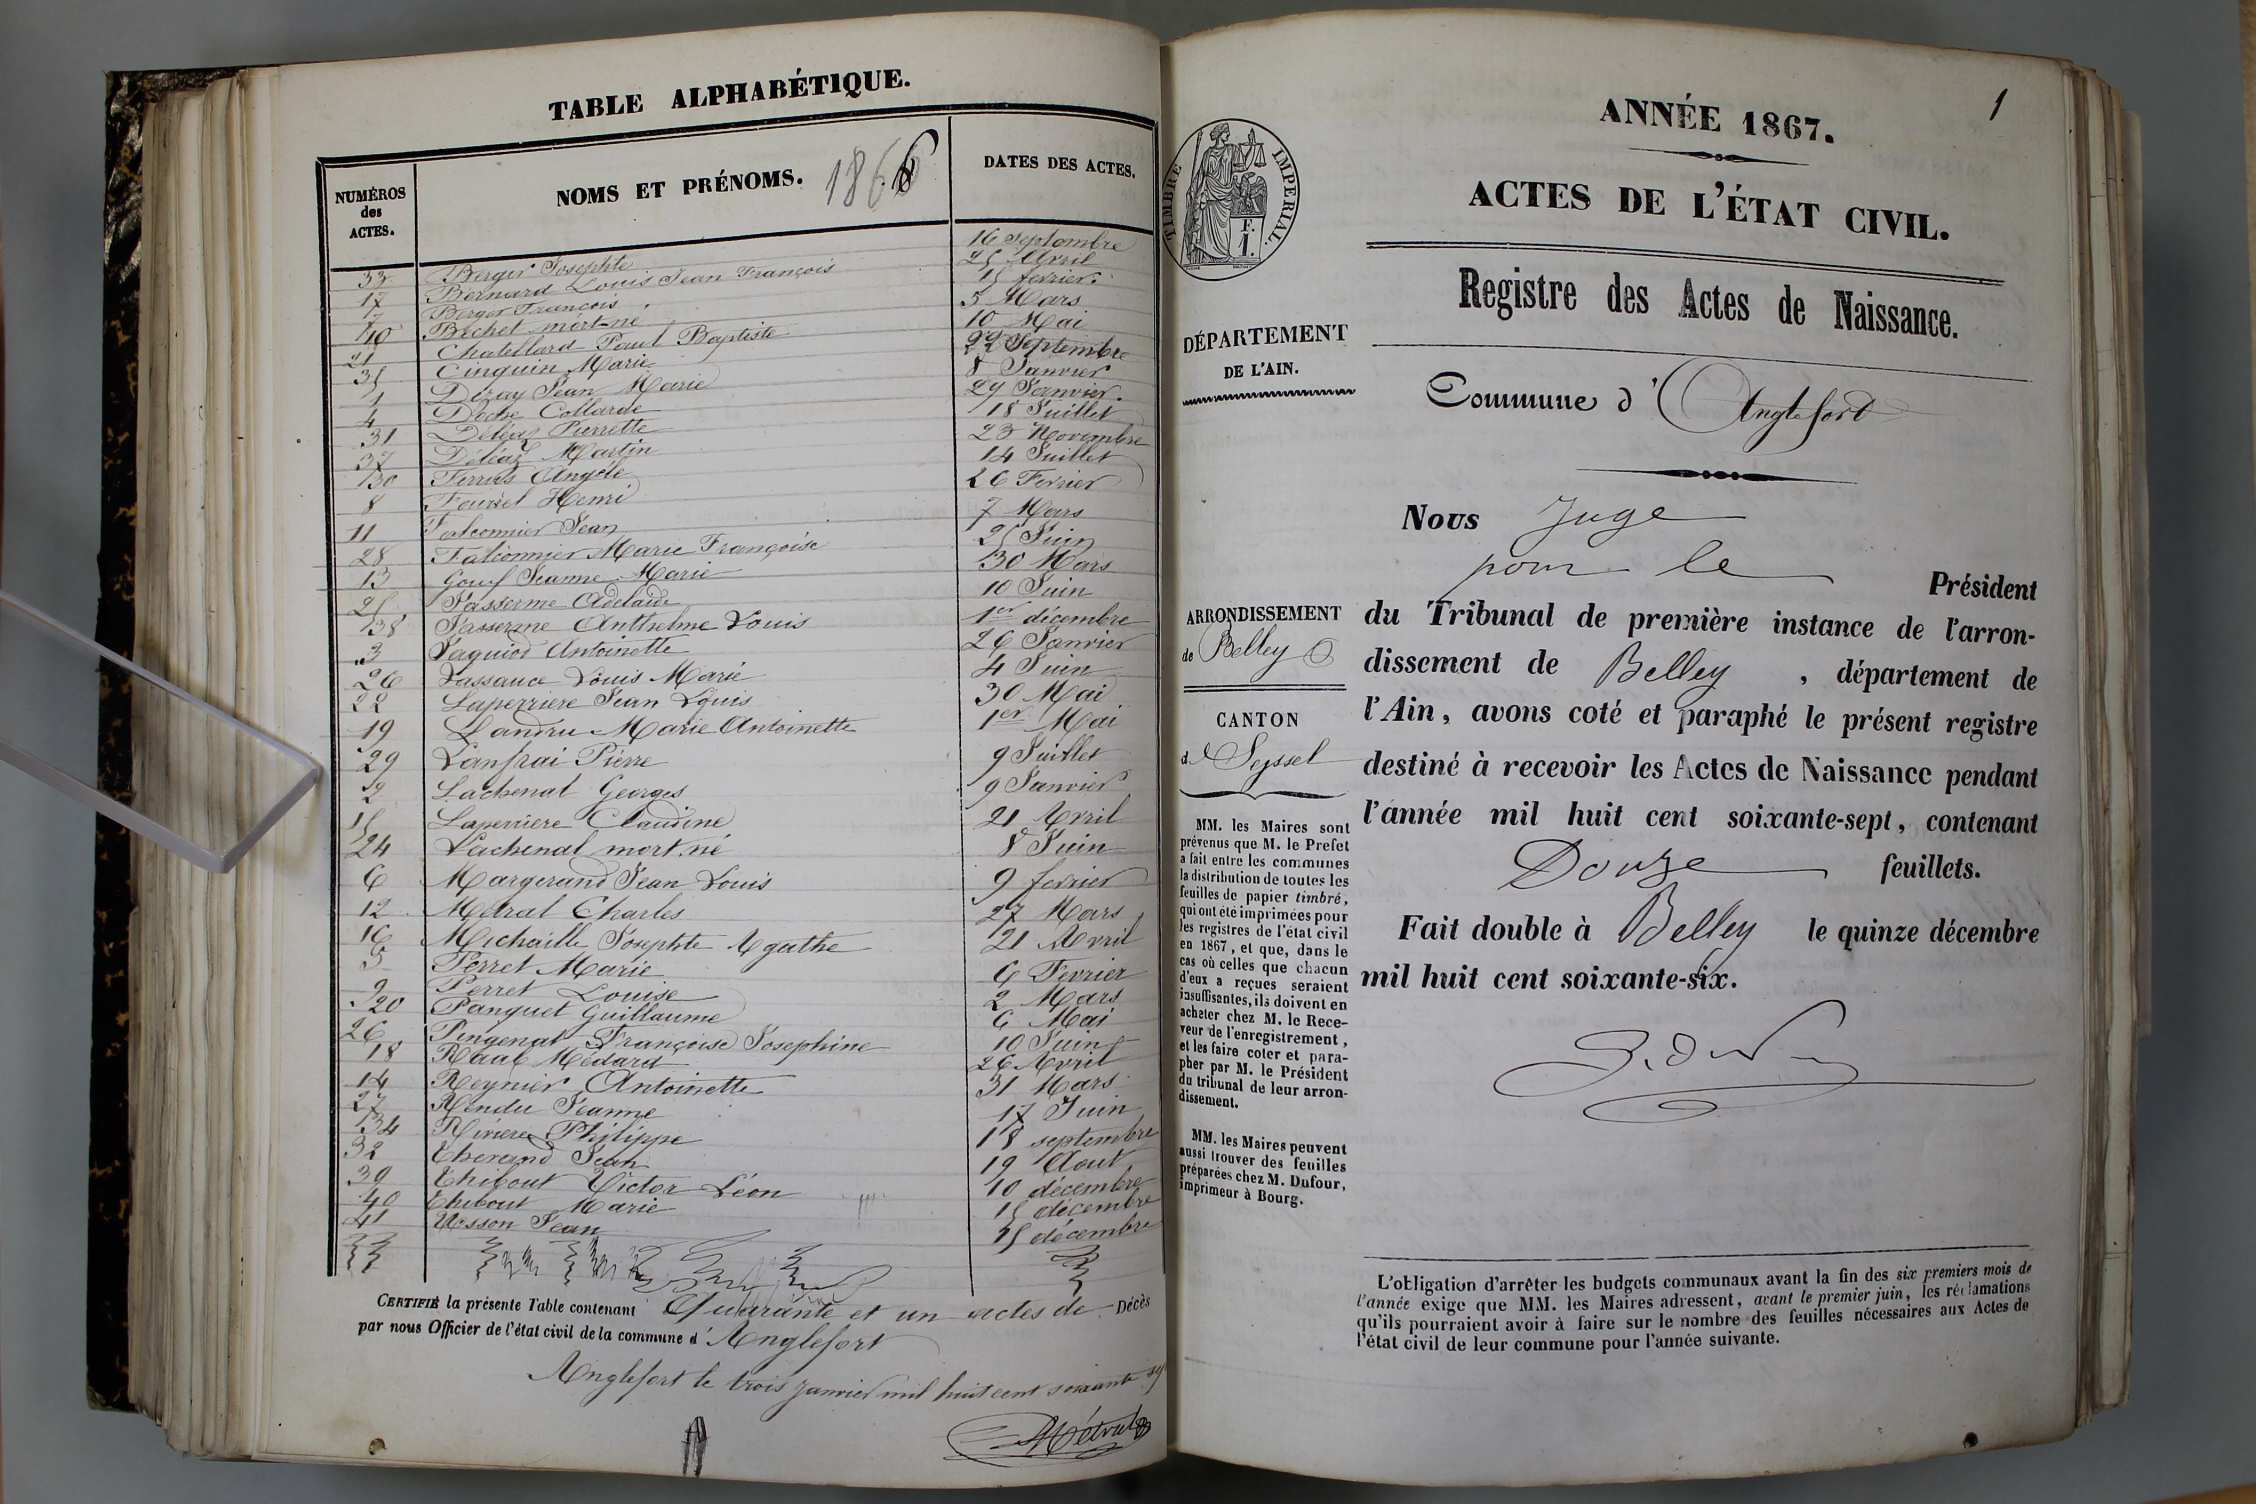 TABLE ALPHABÉTIQUE.
NUMÉROS des ACTES. NOMS ET PRÉNOMS. 1866 DATES DES ACTES.
33 Berger Josephte 16 Septembre
17 Bernard Louis Jean François 25 Avril
7 Berger François 15 fevrier
10 Bechet mort-né 5 Mars
21 Chatellard Paul Baptiste 10 Mai
35 Cinquin Marie 22 Septembre
1 Déray Jean Marie 8 Janvier
4 Doche Collarde 29 Janvier
31 Déléaz Pierrette 18 Juillet
37 Déléaz Martin 23 Novembre
30 Ferrus Angèle 14 Juillet
8 Fourrel Henri 26 Fevrier
11 Falconnier Jean 7 Mars
28 Falconnier Marie Françoise 25 Juin
13 Jeanne Marie 30 Mars
25 Jasserme Adelaide 10 Juin
38 Jasserme Anthelme Louis 1er décembre
3 Jaquiod Antoinette 26 Janvier
Lassauce Louis Marie 4 Juin
22 Laperriere Jean Louis 30 Mai
19 Landru Marie Antoinette 1er Mai
29 Lanfrai Pierre 9 Juillet
2 Lachenal Georges 9 Janvier
15 Laperriere Claudine 21 Avril
24 Lachenal mort né 8 Juin
6 Margerand Jean Louis 9 fevrier
12 Métral Charles 27 Mars
16 Michaille Josephte Agathe 21 Avril
5 Perret Marie 6 Fevrier
9 Perret Louise 2 Mars
20 Panquet Guillaume 6 Mai
26 Pingenat Françoise Josephine 10 Juin
18 Raub Médard 26 Avril
14 Reynier Antoinette 31 Mars
27 Rendu Jeanne 17 Juin
34 Riviere Philippe 18 septembre
32 Therand Jean 19 Aout
39 Thibout Victor Léon 10 décembre
40 Thibout Marie 15 décembre
41 Usson Jean 25 décembre
CERTIFIÉ la présente Table contenant Quarante et un actes de Décès
par nous Officier de l'état civil de la commune d' Anglefort
Anglefort le trois janvier mil huit cent soixante sept
Métral
1
ANNÉE 1867.
ACTES DE L'ÉTAT CIVIL.
Registre des Actes de Naissance.
Commune d' Anglefort
TIMBRE IMPERIAL.
F.
1.
DÉPARTEMENT
DE L'AIN.
ARRONDISSEMENT
de Belley
CANTON
de Seyssel
MM. les Maires sont
prévenus que M. le Prefet
a fait entre les communes
la distribution de toutes les
feuilles de papier timbré,
qui ont été imprimées pour
les registres de l'état civil
en 1867, et que, dans le
cas où celles que chacun
d'eux a reçues seraient
insuffisantes, ils doivent en
acheter chez M. le Rece-
veur de l'enregistrement,
et les faire coter et para-
pher par M. le Président
du tribunal de leur arron-
dissement.
MM. les Maires peuvent
aussi trouver des feuilles
préparées chez M. Dufour,
imprimeur à Bourg.
Nous Juge
pour le Président
du Tribunal de première instance de l'arron-
dissement de Belley , département de
l'Ain, avons coté et paraphé le présent registre
destiné à recevoir les Actes de Naissance pendant
l'année mil huit cent soixante-sept, contenant
Douze feuillets.
Fait double à Belley le quinze décembre
mil huit cent soixante-six.
L'obligation d'arrêter les budgets communaux avant la fin des six premiers mois de
l'année exige que MM. les Maires adressent, avant le premier juin, les réclamations
qu'ils pourraient avoir à faire sur le nombre des feuilles nécessaires aux Actes de
l'état civil de leur commune pour l'année suivante.